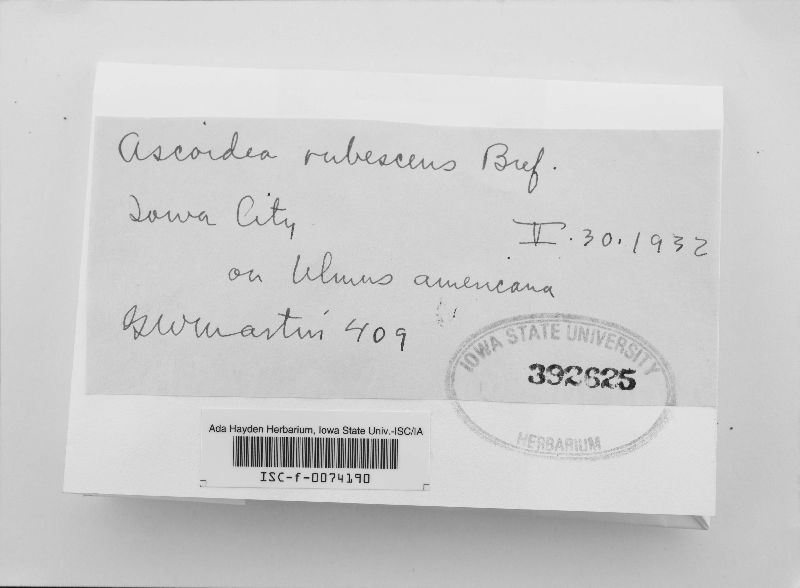 Ascoidea rubescens Bref.
Iowa City
V.30.1932
on Ulmus americana
GWMartin 409
IOWA STATE UNIVERSITY
392625
HERBARIUM
Ada Hayden Herbarium, Iowa State Univ.-ISC/IA
ISC-f-0074190